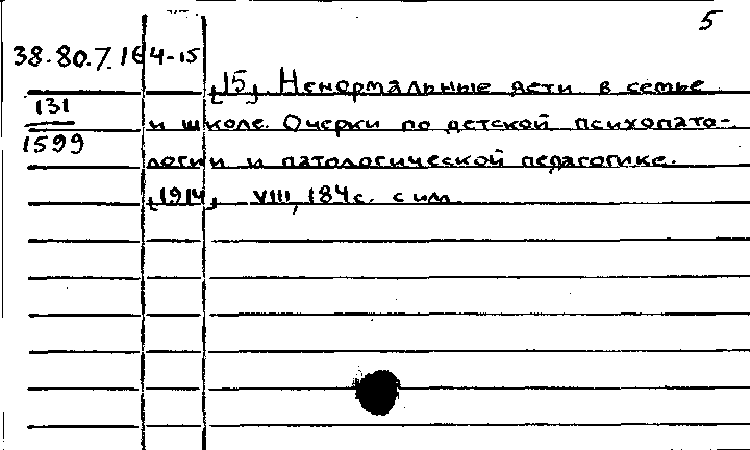 5
38.80.7.164-15
[15] Ненормальные дети в семье
131
и школе. Очерки по детской психопато-
1599
логии и патологической педагогике.
[1914] VIII, 184 с. с илл.